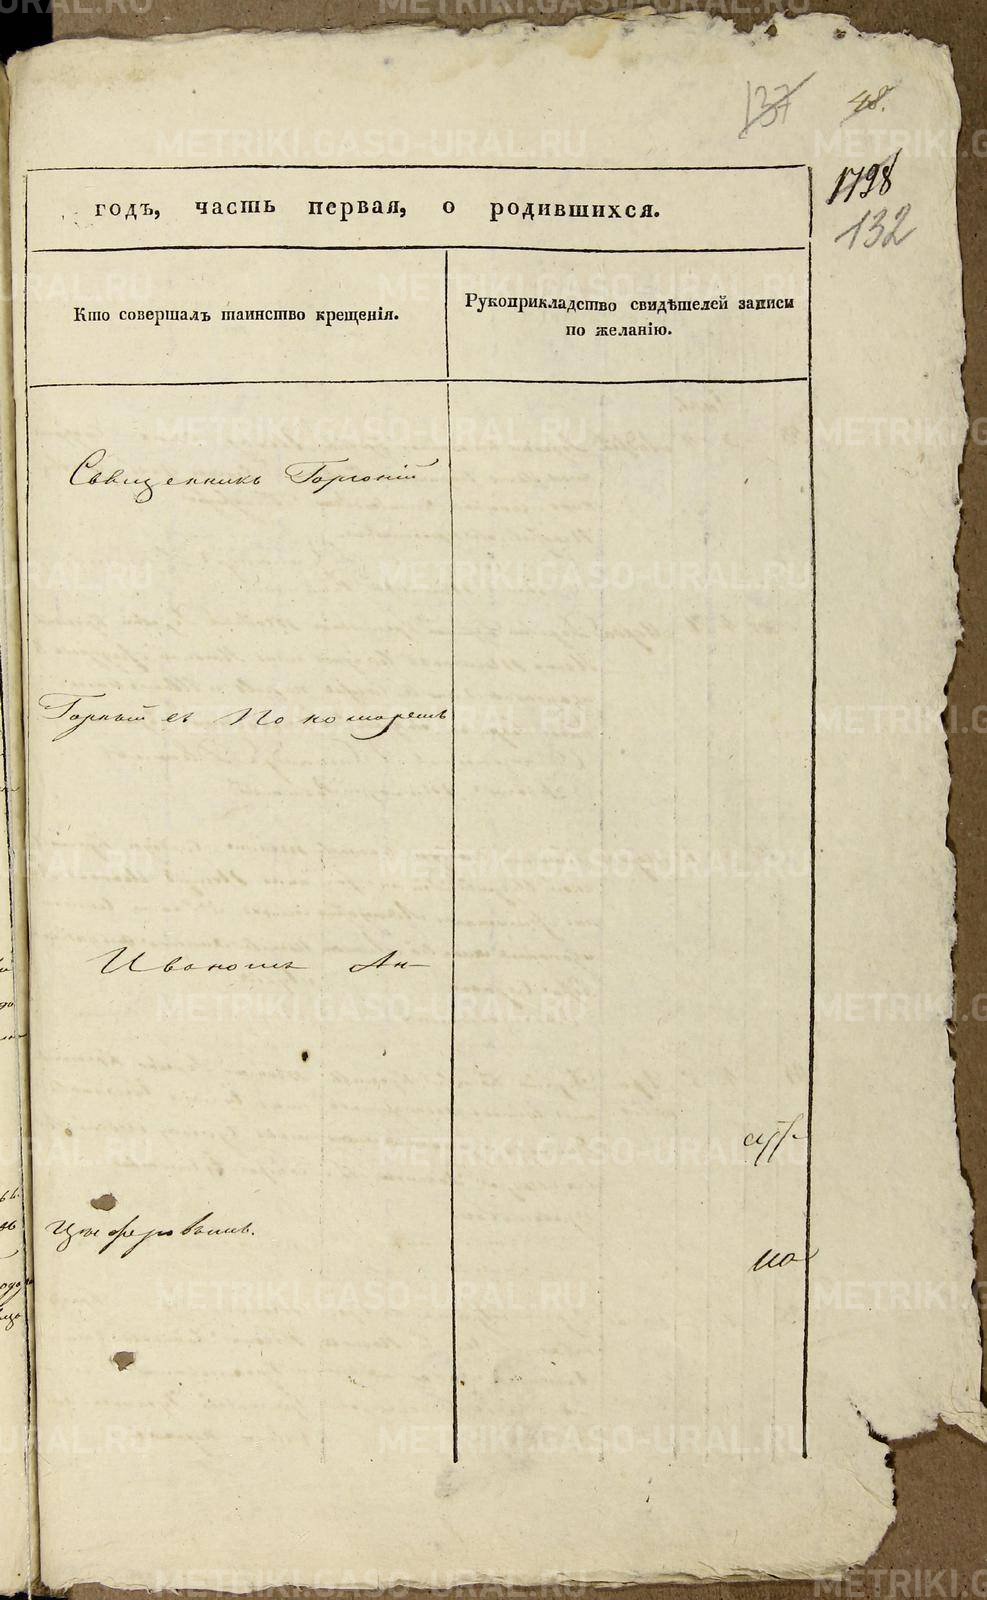 137
48.
1798
132
годъ, часть первая, о родившихся.
Кто совершалъ таинство крещенія.
Рукоприкладство свидѣтелей записи
по желанію.
Священникъ Горгоній
Горный съ Пономаремъ
Иваномъ Ан-
циферовымъ.
на
METRIKI.GASO-URAL.RU